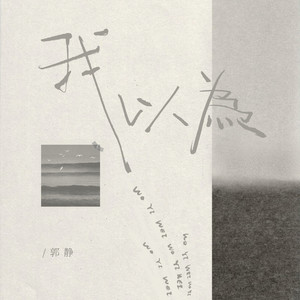 我以為
wo Yi wei wo yi wei
wo Yi wei
wo Yi wei
/ 郭静